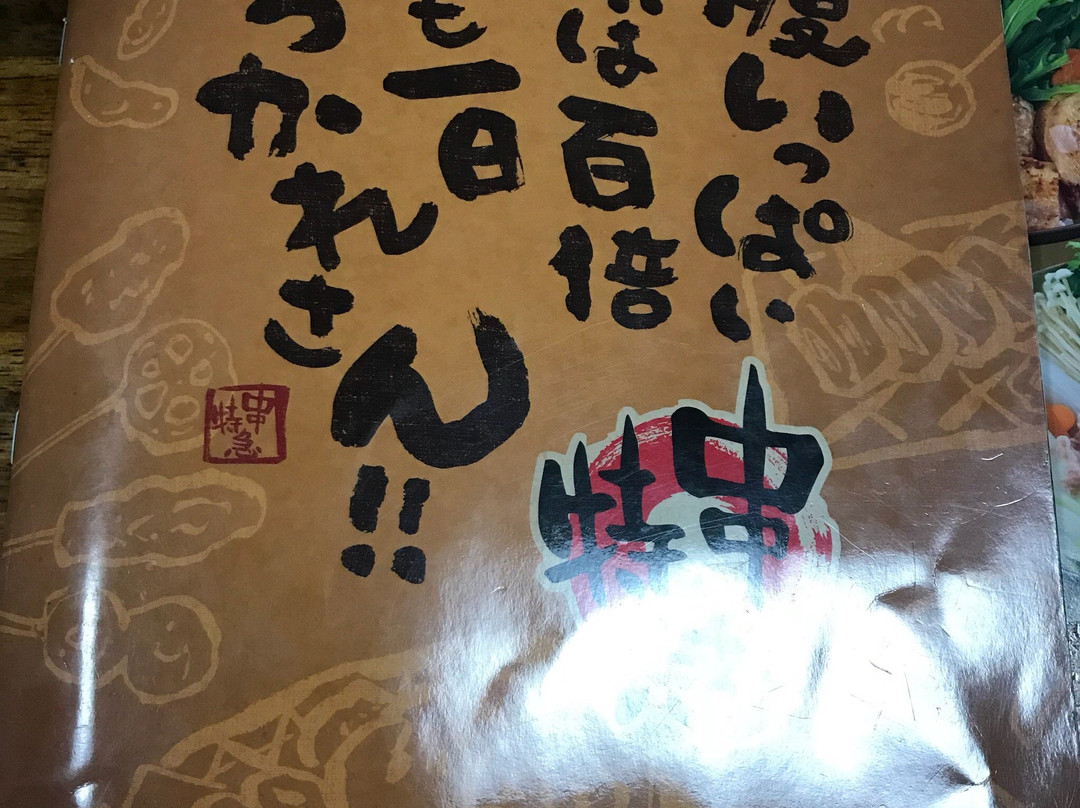 腹いっぱい
は百倍
も一日
つかれさん!!
串
特
串
特急